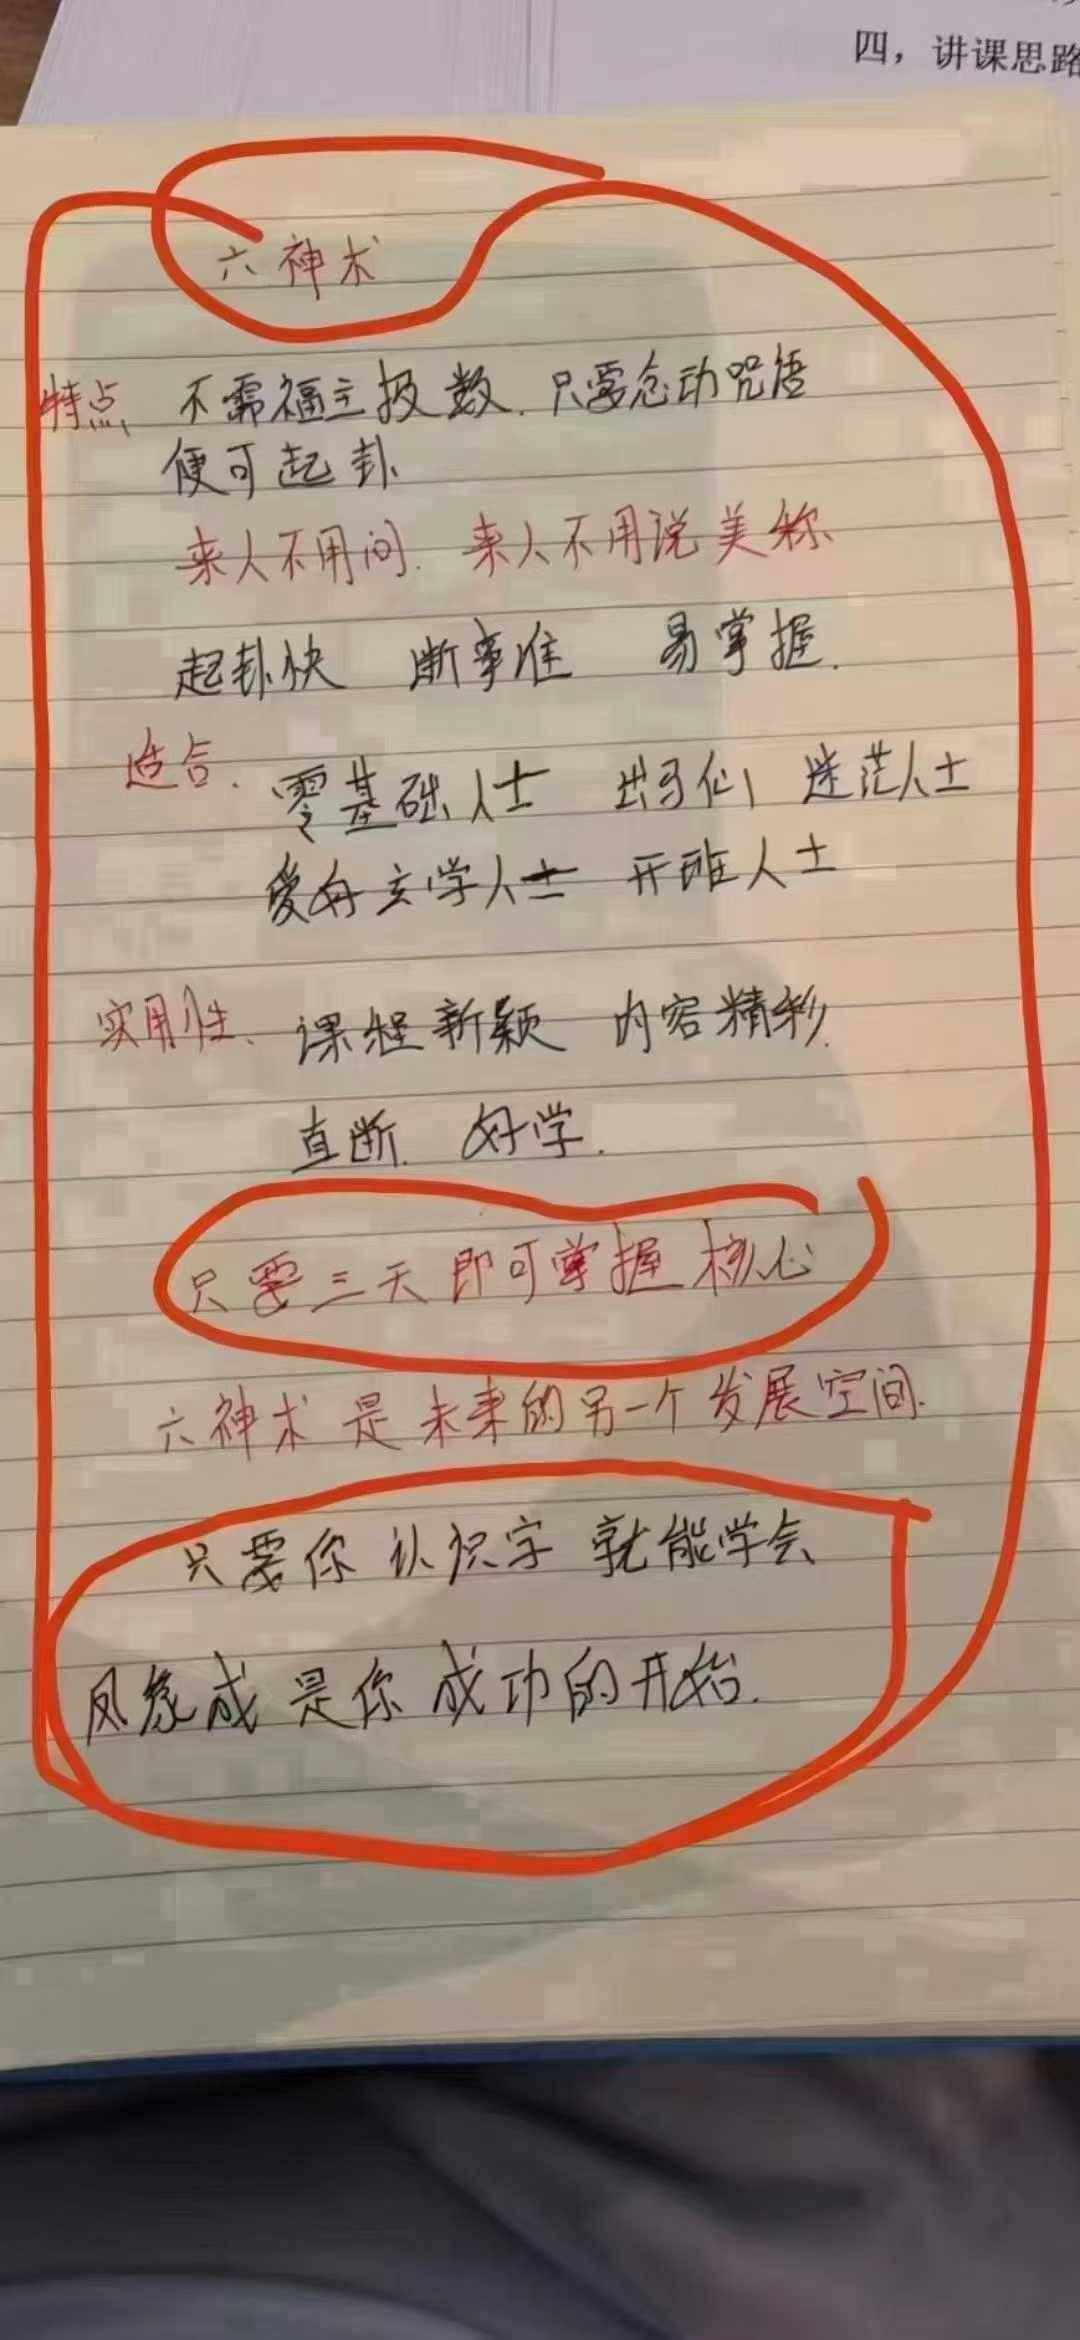 四，讲课思路
六神术
特点 不需福主报数.只要念动咒语
便可起卦
来人不用问.来人不用说美称
起卦快 断事准 易掌握.
适合. 零基础人士 出马仙 迷茫人士
爱好玄学人士 开班人士
实用性、课程新颖 内容精彩.
直断. 好学.
只要三天即可掌握核心
六神术是未来的另一个发展空间.
只要你认识字 就能学会
风象成是你成功的开始.